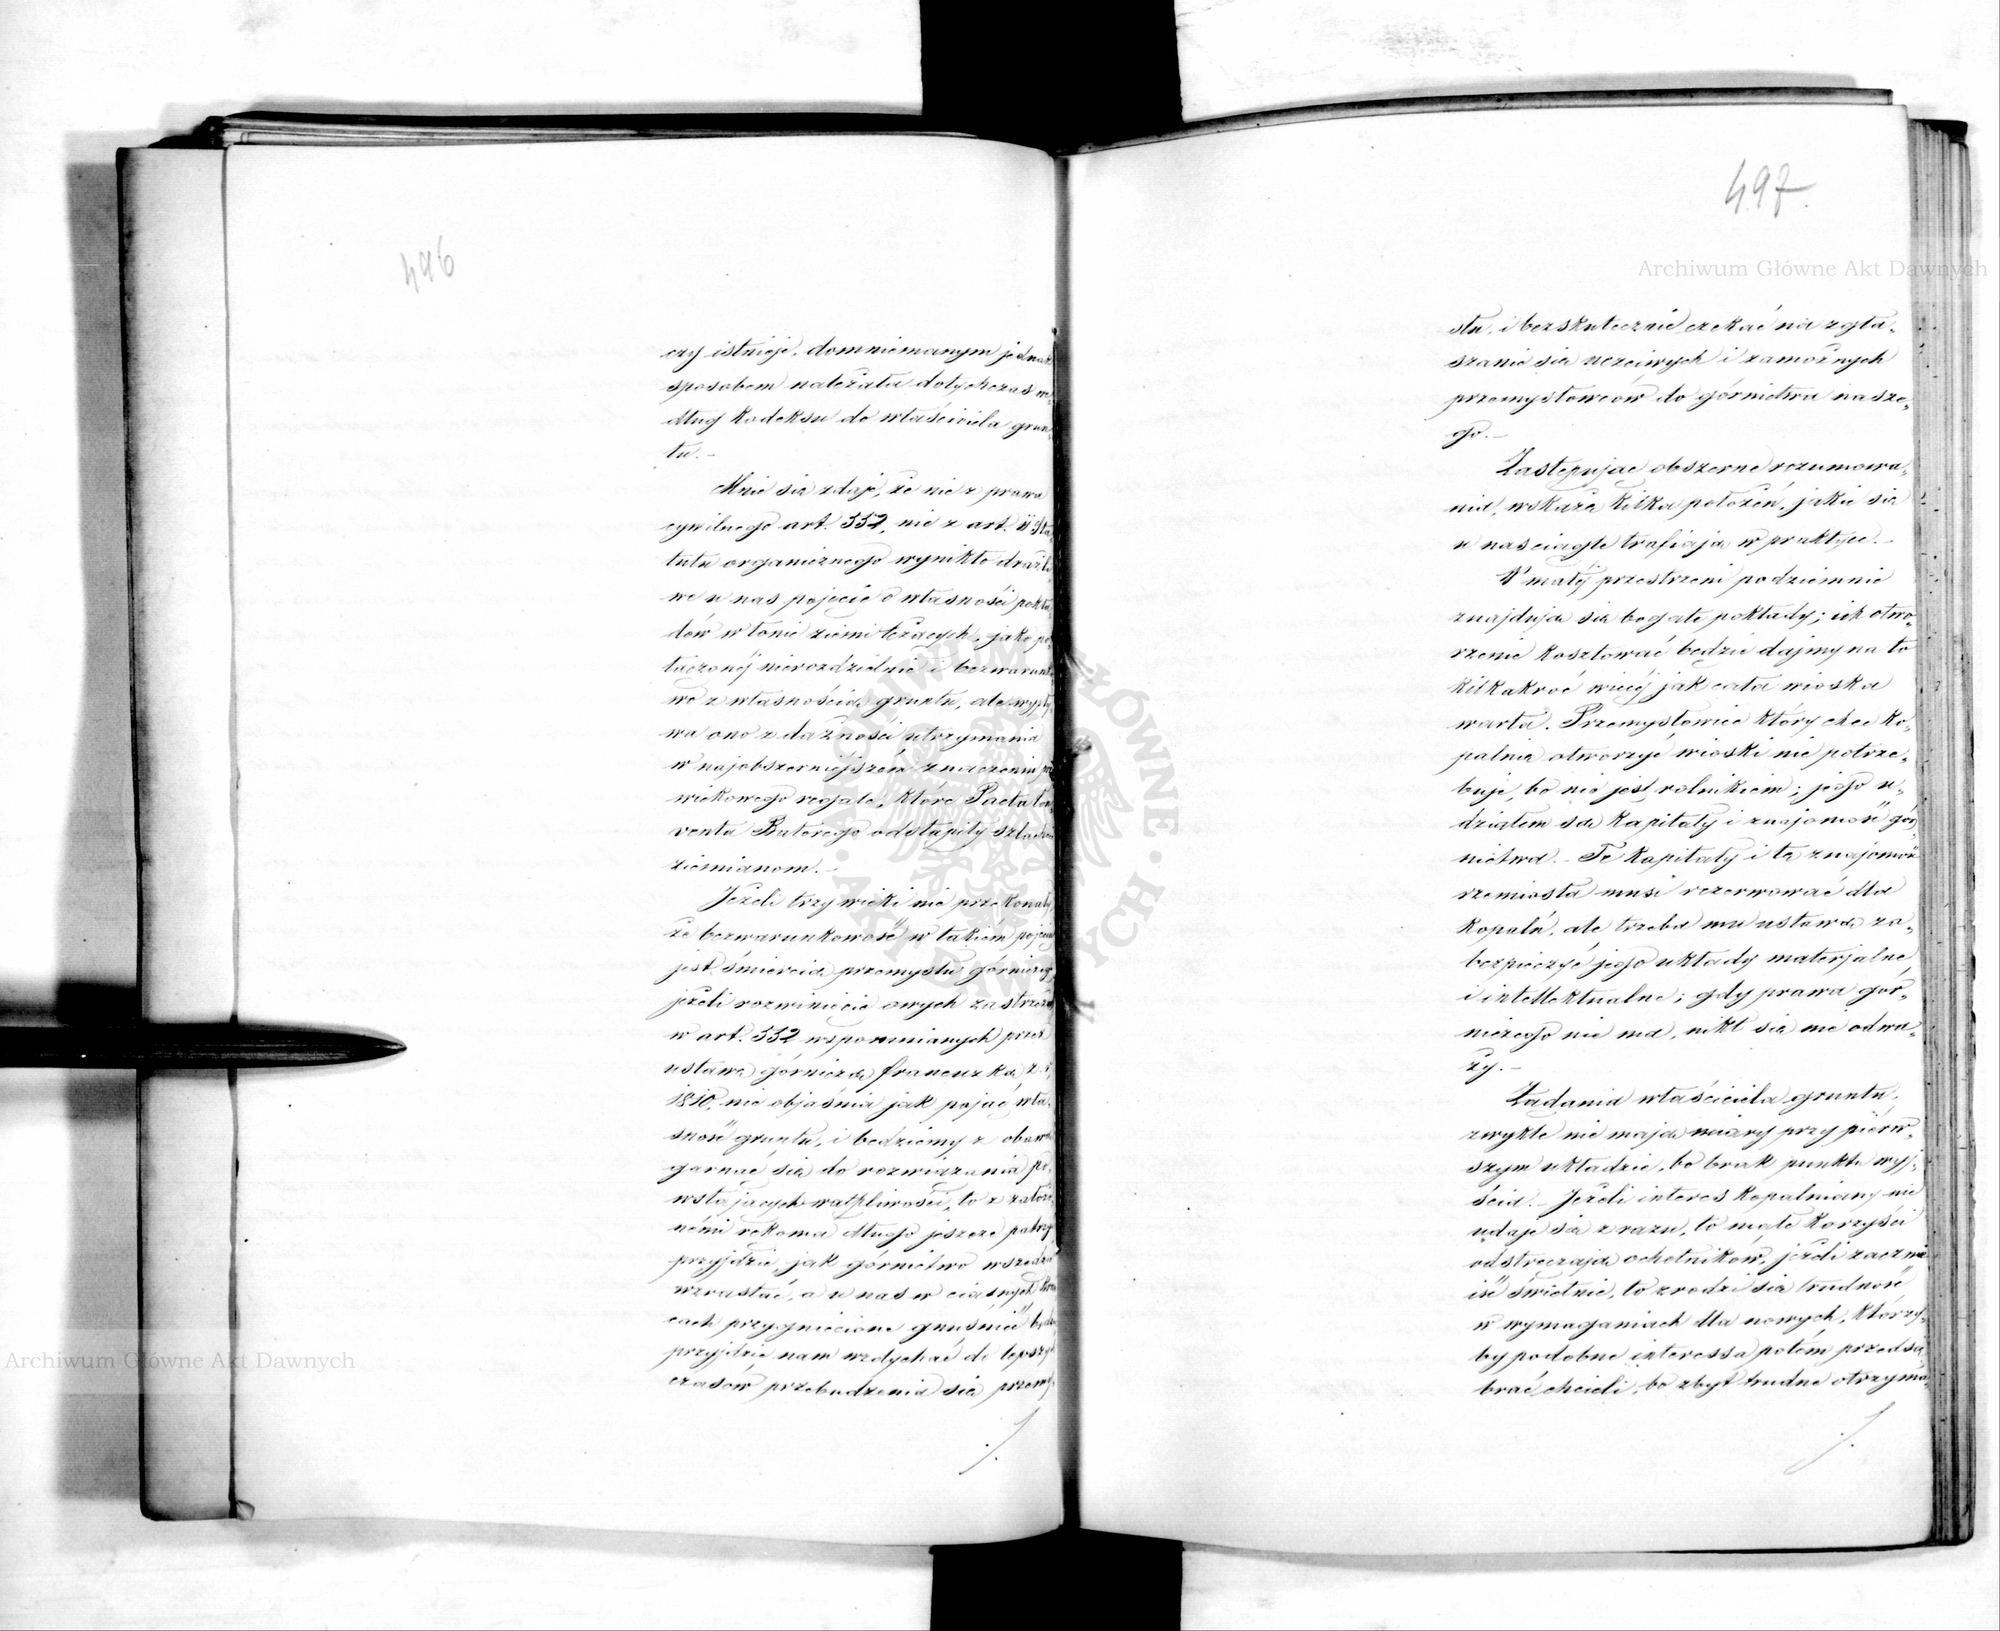 496
czy istnieje, domniemanym jednak
sposobem należała dotychczas we-
dług kodeksu do właściciela grun
tu. –
Mnie się zdaje, że nie z prawa
cywilnego art. 552, nie z art. Sta-
tutu organicznego wynikło drażli
we u nas pojęcie o własności pokła
dów w łonie ziemi leżących, jako po
łączonéj nierozdzielnie i bezwarunko
wo z własnością gruntu, ale wypły
wa ono z dążności utrzymania
w najobszerniejszém znaczeniu
wiekowego regale, które Pacta Con
venta Batorego odstąpiły szlachcie
ziemianom. –
Jeżeli trzy wieki nie przekonały,
że bezwarunkowość w takiém pojęciu
jest śmiercią przemysłu górniczego,
jeżeli rozwinięcie owych zastrzeżeń
w art. 552 wspomnianych przez
ustawę górniczą francuzką z r.
1810, nie objaśnia jak pojąć wła-
sność gruntu, i będziemy z obawą
garnąć się do rozwiązania po-
wstających wątpliwości, to z założo
némi rękoma długo jeszcze patrzyć
przyjdzie, jak górnictwo wszędzie
wzrastać, a u nas w ciasnych
cach przygniecione gnuśnieć będzie
przyjdzie nam wzdychać do lepszych
czasów przebudzenia się przemy-
497.
słu, i bezskutecznie czekać na zgła-
szanie się uczciwych i zamożnych
przemysłowców do górnictwa nasze-
go. –
Zastępując obszerne rozumowa-
nia, wskażę kilka położeń, jakie się
u nas ciągle trafiają w praktyce. –
W małéj przestrzeni podziemnie
znajdują się bogate pokłady; ich otwo-
rzenie kosztować będzie dajmy na to
kilkakroć więcéj jak cała wioska
warta. Przemysłowiec który chce ko-
palnię otworzyć wioski nie potrze-
buje, bo nie jest rolnikiem; jego u-
działem są kapitały i znajomość gór-
nictwa. – Te kapitały i tę znajomość
rzemiosła musi rezerwować dla
kopalń, ale trzeba mu ustawą za-
bezpieczyć jego układy materjalne
i intellektualne; gdy prawa gór-
niczego nie ma, nikt się nie odwa-
ży. –
Żądania właściciela gruntu,
zwykle nie mają miary przy piérw-
szym układzie, bo brak punktu wyj-
ścia. – Jeżeli interes kopalniany nie
udaje się z razu, to małe korzyści
odstręczają ochotników, jeżeli zacznie
iść świetnie, to zrodzi się trudność
w wymaganiach dla nowych, którzy-
by podobne interessa potém przedsię
brać chcieli, bo zbyt trudne otrzyma-
Archiwum Główne Akt Dawnych
Archiwum Główne Akt Dawnych